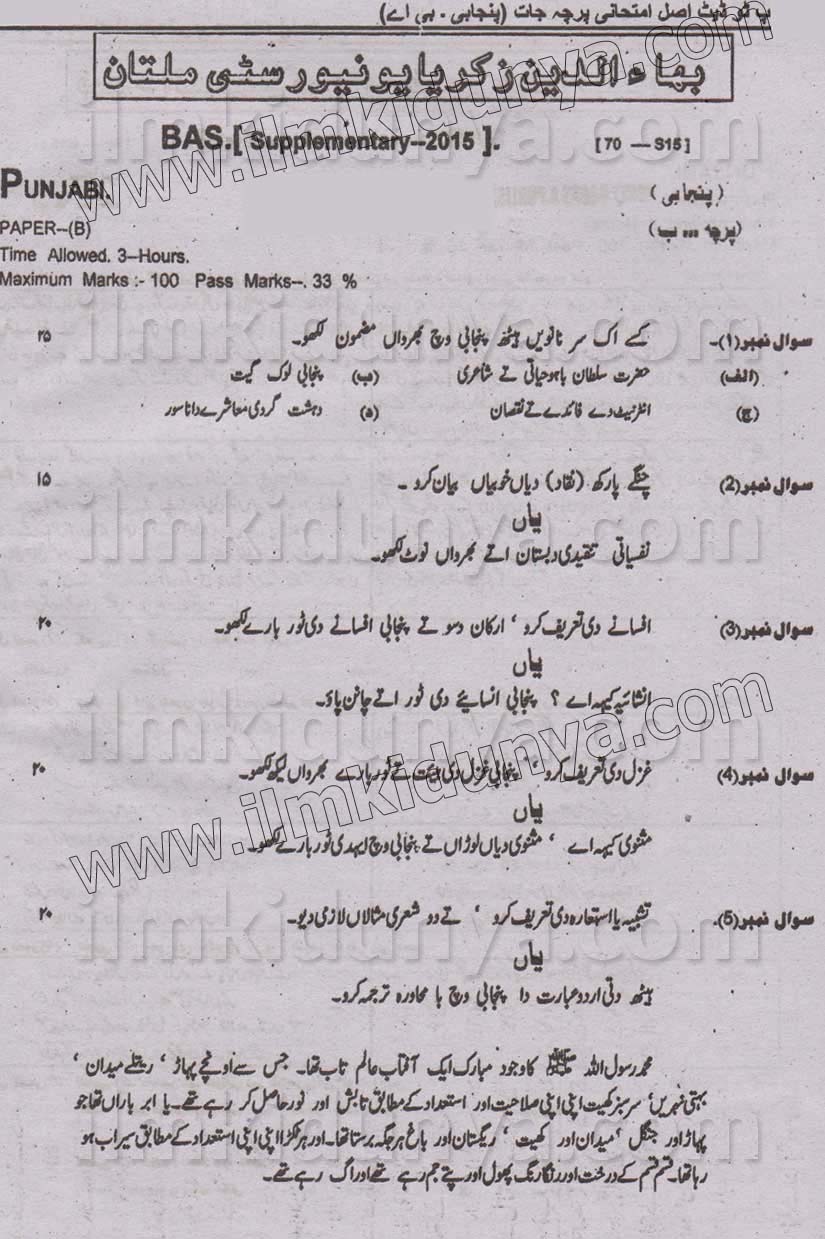 پ ٹو ڈیٹ اصل امتحانی پرچہ جات (پنجابی ۔ بی اے)
بهاءالدین زکریا یونیورسٹی ملتان
BAS.[ Supplementary--2015 ]. [ 70 — S15 ]
PUNJABI. (پنجابی)
PAPER--(B) (پرچہ ... ب)
Time Allowed. 3--Hours.
Maximum Marks :- 100 Pass Marks--. 33 %
سوال نمبر(1)۔ کسے اک سر نانویں ہیٹھ پنجابی وچ بھرواں مضمون لکھو۔ ۲۵
(الف) حضرت سلطان باہو حیاتی تے شاعری (ب) پنجابی لوک گیت
(ج) انٹرنیٹ دے فائدے تے نقصان (د) دہشت گردی معاشرے دا ناسور
سوال نمبر(2) چنگے پارکھ (نقاد) دیاں خوبیاں بیان کرو ۔ ۱۵
یاں
نفسیاتی تنقیدی دبستان اتے بھرواں نوٹ لکھو۔
سوال نمبر(3) افسانے دی تعریف کرو ، ارکان دسو تے پنجابی افسانے دی ٹور بارے لکھو۔ ۲۰
یاں
انشائیہ کیہہ اے ؟ پنجابی انشائیے دی ٹور اتے چانن پاؤ۔
سوال نمبر(4) غزل دی تعریف کرو ، پنجابی غزل دی ہیئت تے ٹور بارے بھرواں لیکھ لکھو۔ ۲۰
یاں
مثنوی کیہہ اے ، مثنوی دیاں لوڑاں تے پنجابی وچ ایہدی ٹور بارے لکھو۔
سوال نمبر(5)۔ تشبیہ یا استعارہ دی تعریف کرو ، تے دو شعری مثالاں لازمی دیو۔ ۲۰
یاں
ہیٹھ دتی اردو عبارت دا پنجابی وچ با محاورہ ترجمہ کرو۔
محمد رسول اللہ ﷺ کا وجود مبارک ایک آفتاب عالم تاب تھا۔ جس سے اونچے پہاڑ ، ریتلے میدان ،
بہتی نہریں، سرسبز کھیت اپنی اپنی صلاحیت اور استعداد کے مطابق تابش اور نور حاصل کر رہے تھے۔ یا ابر باراں تھا جو
پہاڑ اور جنگل ، میدان اور کھیت ، ریگستان اور باغ ہر جگہ برستا تھا۔ اور ہر ٹکڑا اپنی اپنی استعداد کے مطابق سیراب ہو
رہا تھا۔ قسم قسم کے درخت اور رنگا رنگ پھول اور پتے جم رہے تھے اور اگ رہے تھے۔
www.ilmkidunya.com
ilmkidunya.com
ilmkidunya.com
ilmkidunya.com
www.ilmkidunya.com
ilmkidunya.com
ilmkidunya.com